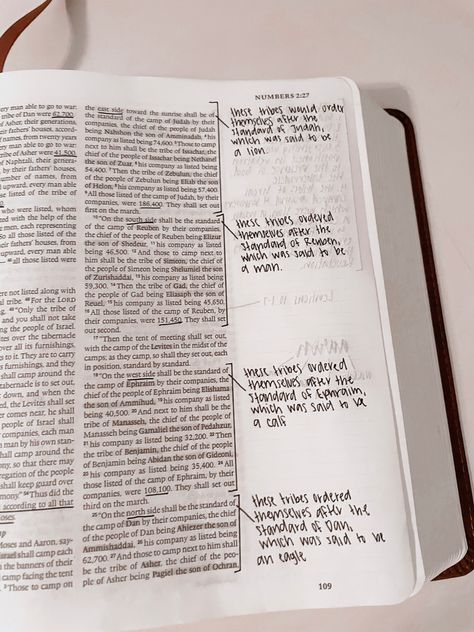 NUMBERS 2:27
every man able to go to war:
tribe of Dan were 62,700.
of Asher, their generations,
eir fathers' houses, accord-
names, from twenty years
an able to go to war:
ribe of Asher were 41,500.
of Naphtali, their genera-
, by their fathers' houses,
number of names, from
upward, every man able
listed of the tribe of
00.
who were listed, whom
ted with the help of the
men, each representing
So all those listed of the
eir fathers' houses, from
upward, every man able
all those listed were
re not listed along with
al tribe. For the LORD
"Only the tribe of
and you shall not take
ng the people of Israel.
ites over the tabernacle
over all its furnishings,
to it. They are to carry
furnishings, and they
shall camp around the
tabernacle is to set out,
down, and when the
ed, the Levites shall set
comes near, he shall
people of Israel shall
companies, each man
man by his own stan-
hall camp around the
ony, so that there may
egation of the people
shall keep guard over
mony." Thus did the
according to all that
oses.
Moses and Aaron, say-
srael shall camp each
the banners of their
camp facing the tent
Those to camp on
the east side toward the sunrise shall be of
the standard of the camp of Judah by their
companies, the chief of the people of Judah
being Nahshon the son of Amminadab, 4 his
company as listed being 74,600. 5 Those to camp
next to him shall be the tribe of Issachar, the
chief of the people of Issachar being Nethanel
the son of Zuar, 6 his company as listed being
54,400. 7 Then the tribe of Zebulun, the chief
of the people of Zebulun being Eliab the son
of Helon, 8 his company as listed being 57,400.
9 All those listed of the camp of Judah, by their
companies, were 186,400. They shall set out
first on the march.
10 "On the south side shall be the standard
of the camp of Reuben by their companies,
the chief of the people of Reuben being Elizur
the son of Shedeur, 11 his company as listed
being 46,500. 12 And those to camp next to
him shall be the tribe of Simeon, the chief of
the people of Simeon being Shelumiel the son
of Zurishaddai, 13 his company as listed being
59,300. 14 Then the tribe of Gad, the chief of
the people of Gad being Eliasaph the son of
Reuel, 15 his company as listed being 45,650.
16 All those listed of the camp of Reuben, by
their companies, were 151,450. They shall set
out second.
17 "Then the tent of meeting shall set out,
with the camp of the Levites in the midst of the
camps; as they camp, so shall they set out, each
in position, standard by standard.
18 "On the west side shall be the standard of
the camp of Ephraim by their companies, the
chief of the people of Ephraim being Elishama
the son of Ammihud, 19 his company as listed
being 40,500. 20 And next to him shall be the
tribe of Manasseh, the chief of the people of
Manasseh being Gamaliel the son of Pedahzur,
21 his company as listed being 32,200. 22 Then
the tribe of Benjamin, the chief of the people
of Benjamin being Abidan the son of Gideoni,
23 his company as listed being 35,400. 24 All
those listed of the camp of Ephraim, by their
companies, were 108,100. They shall set out
third on the march.
25 "On the north side shall be the standard of
the camp of Dan by their companies, the chief
of the people of Dan being Ahiezer the son of
Ammishaddai, 26 his company as listed being
62,700. 27 And those to camp next to him shall
be the tribe of Asher, the chief of the peo-
ple of Asher being Pagiel the son of Ochran,
these tribes would order
themselves after the
standard of Judah,
which was said to be
a lion.
these tribes ordered
themselves after the
standard of Reuben,
which was said to be
a man.
these tribes ordered
themselves after the
standard of Ephraim,
which was said to be
a calf
these tribes ordered
themselves after the
standard of Dan,
which was said to be
an eagle
109